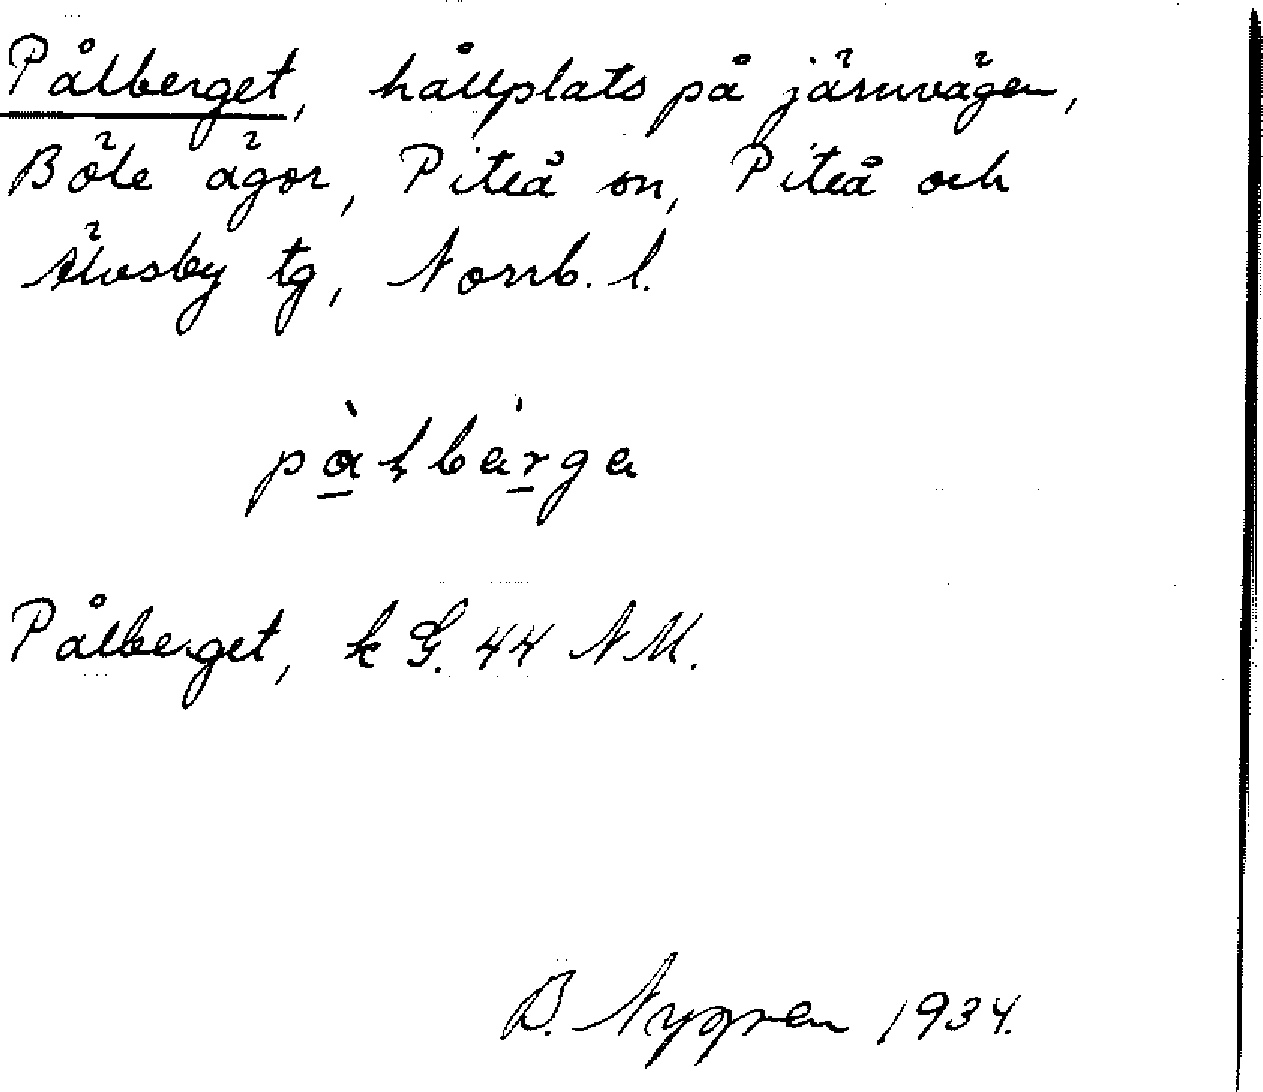 Pålberget, hållplats på järnvägen,
Böle ägor, Piteå sn, Piteå och
Älvsby tg, Norrb. l.
pàłbárga
Pålberget, k G. 44 NM.
B. Nygren 1934.